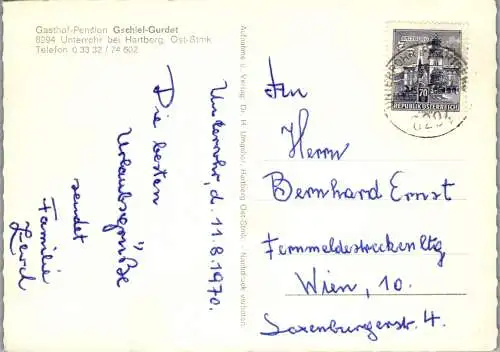 Gasthof-Pension Gschiel-Gurdet
8294 Unterrohr bei Hartberg, Ost-Stmk
Telefon 0 33 32 / 74 602
Unterrohr, d. 11.8.1970.
Die besten
Urlaubsgrüße
sendet
Familie
Aufnahme u. Verlag Dr. H. Hartberg Ost-Stmk. - Nachdruck verboten
70
REPUBLIK ÖSTERREICH
8294
An
Herrn
Bernhard Ernst
Fernmeldestreckenltg
Wien, 10.
Laxenburgerstr. 4.